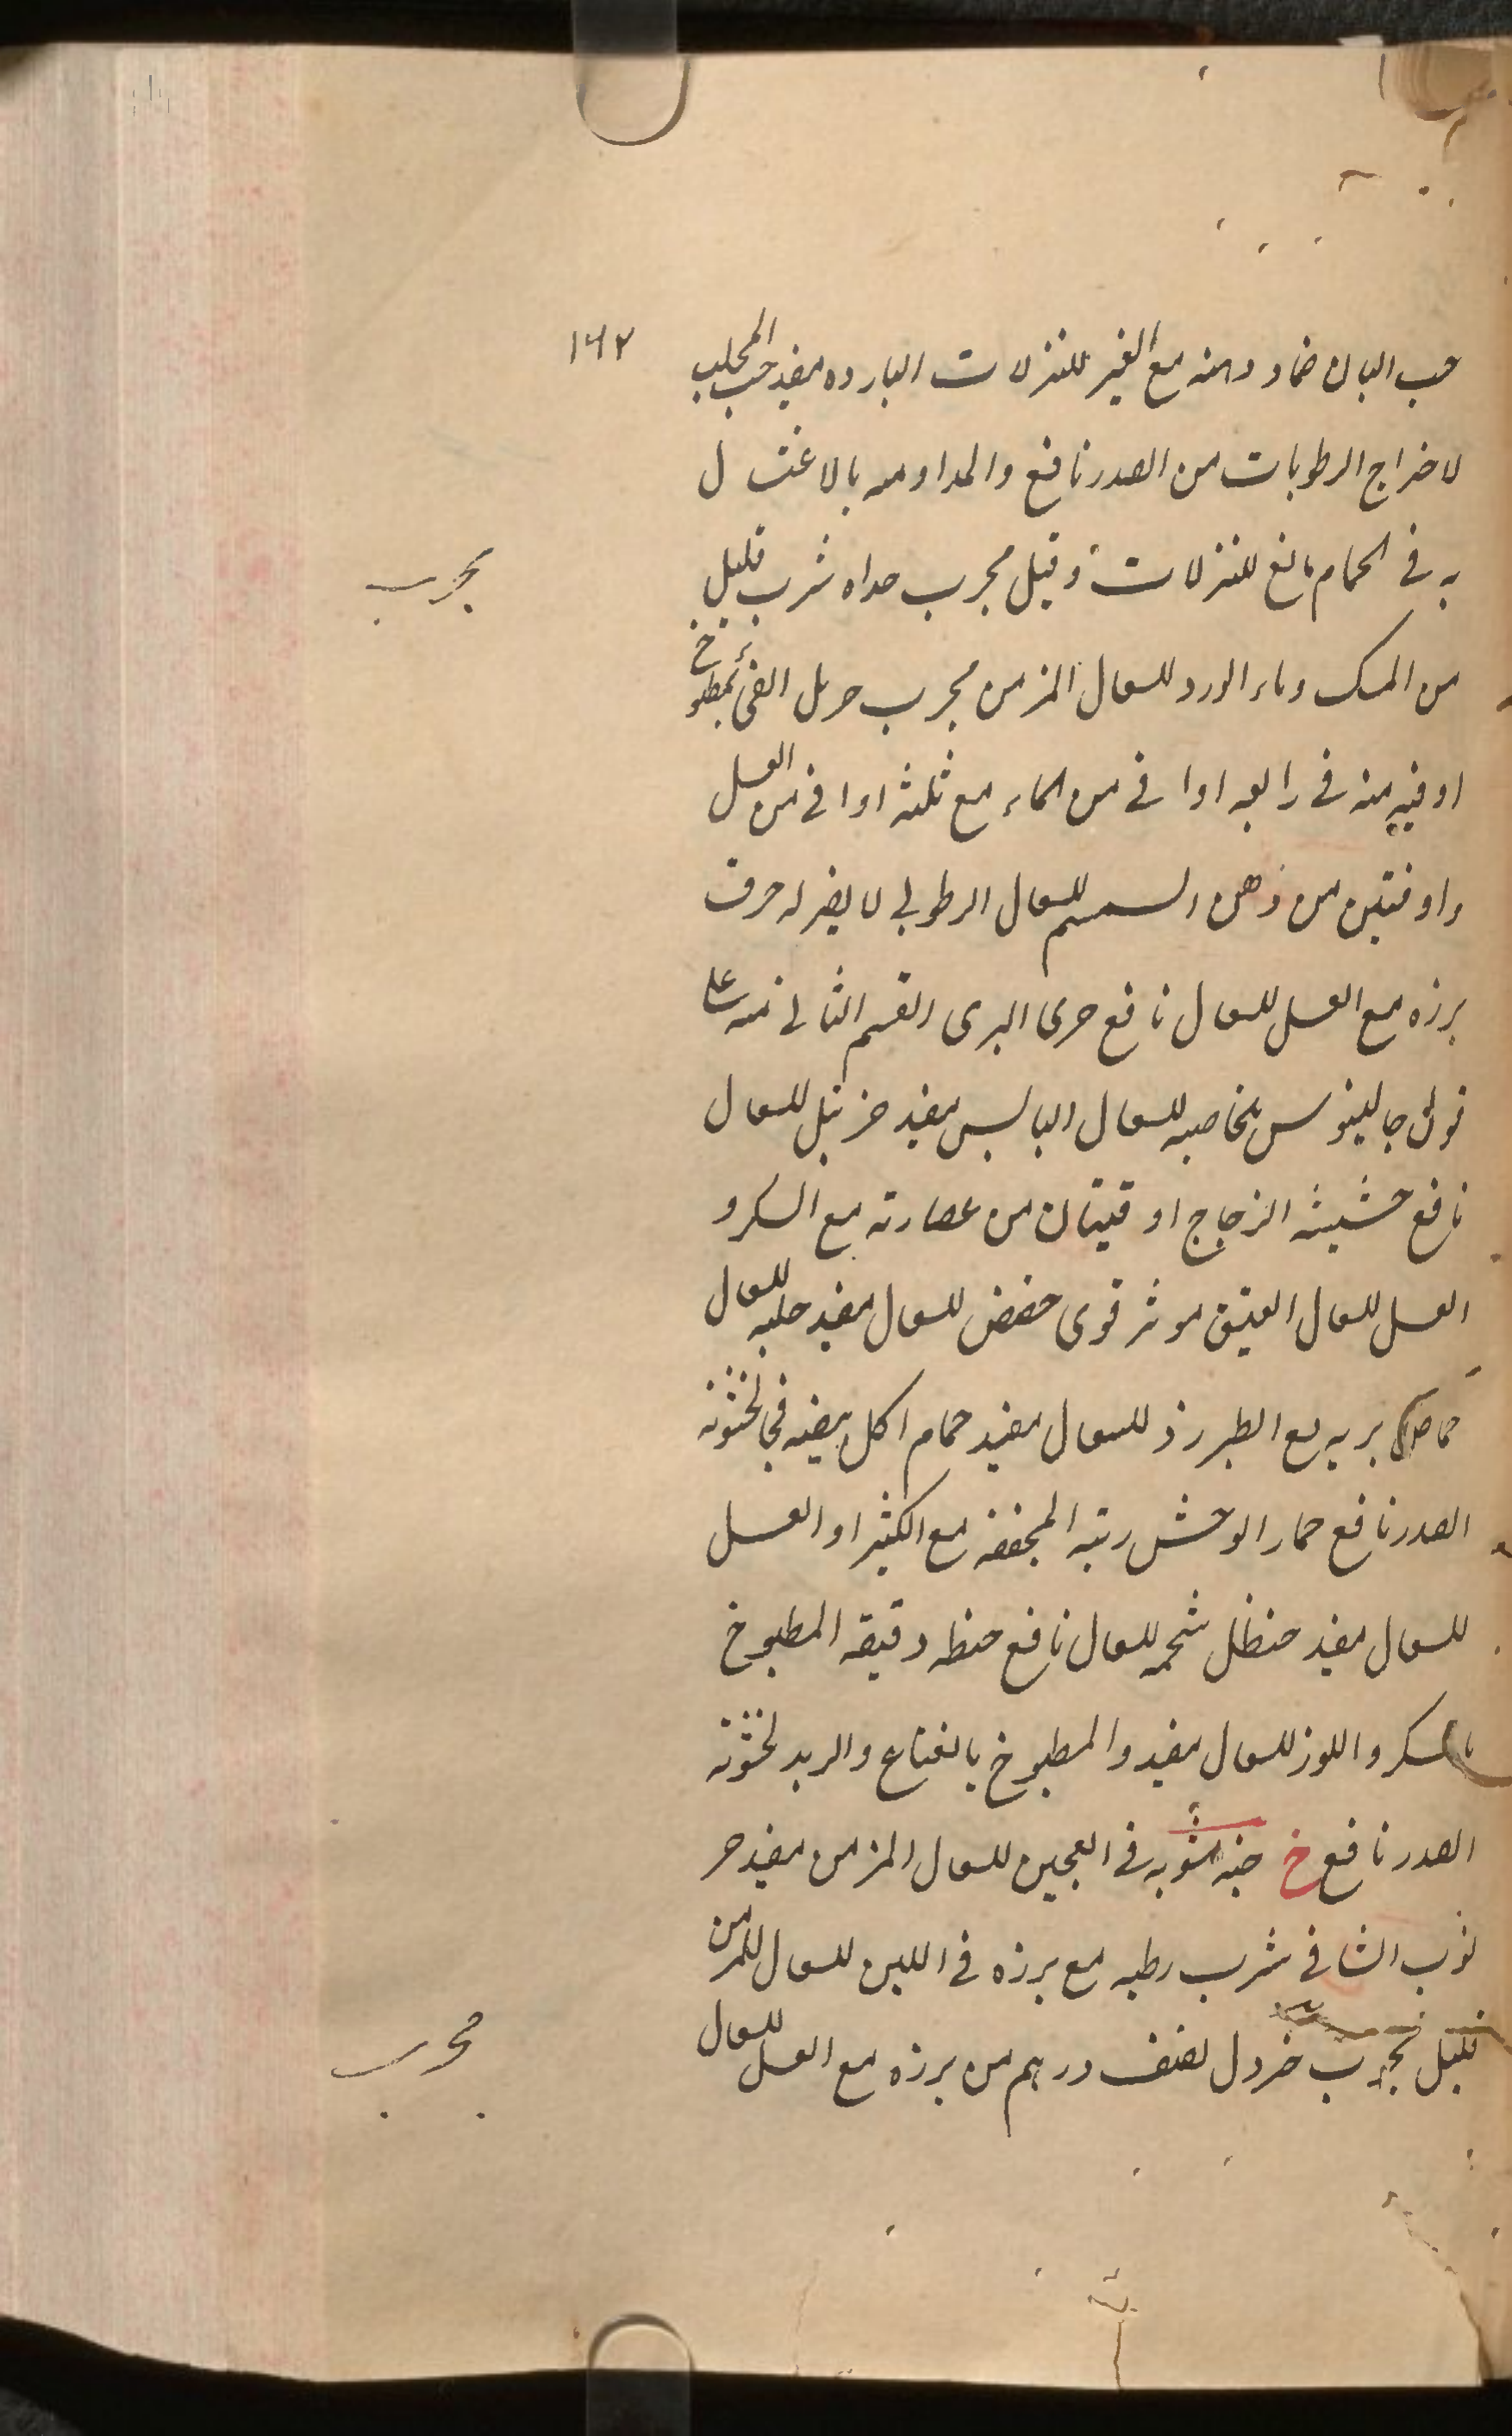 ١٦٢
حب البان ضماد دهنه مع الغير للنزلات البارده مفيد حب المحلب
لاخراج الرطوبات من الصدر نافع والمداومه بالاغتسال
به فى الحمام نافع للنزلات وقيل مجرب شرب قليل
مجرب
من المسك وماء الورد للسعال المزمن مجرب حرمل القئ بمطبوخ
اوقيه منه فى رابعه اواقى من الماء مع ثلثه اواقى من العسل
واوقتين من دهن السمسم للسعال الرطوبى لا يضر له حرف
برزه مع العسل للسعال نافع البرى القسم الثانى منه على
قول جالينوس بخاصيه للسعال اليابس مفيد حزنبل للسعال
نافع حشيشه الزجاج اوقيتان من عصارته مع السكر و
العسل للسعال العتيق موثر قوى حضض للسعال مفيد حلبه للسعال
بريه مع الطبرزد للسعال مفيد حمام اكل بيضه فى لخشونه
الصدر نافع حمار الوحش ريته المجففه مع الكثيرا والعسل
للسعال مفيد حنظل شحمه للسعال نافع حنطه دقيقه المطبوخ
بالسكر واللوز للسعال مفيد والمطبوخ بالنعناع والزبد لخشونه
الصدر نافع خ مشويه فى العجين للسعال المزمن مفيد خر
نوب الشافى شرب رطبه مع برزه فى اللبن للسعال المزمن
قليل مجرب خردل نصف درهم من برزه مع العسل للسعال
مجرب